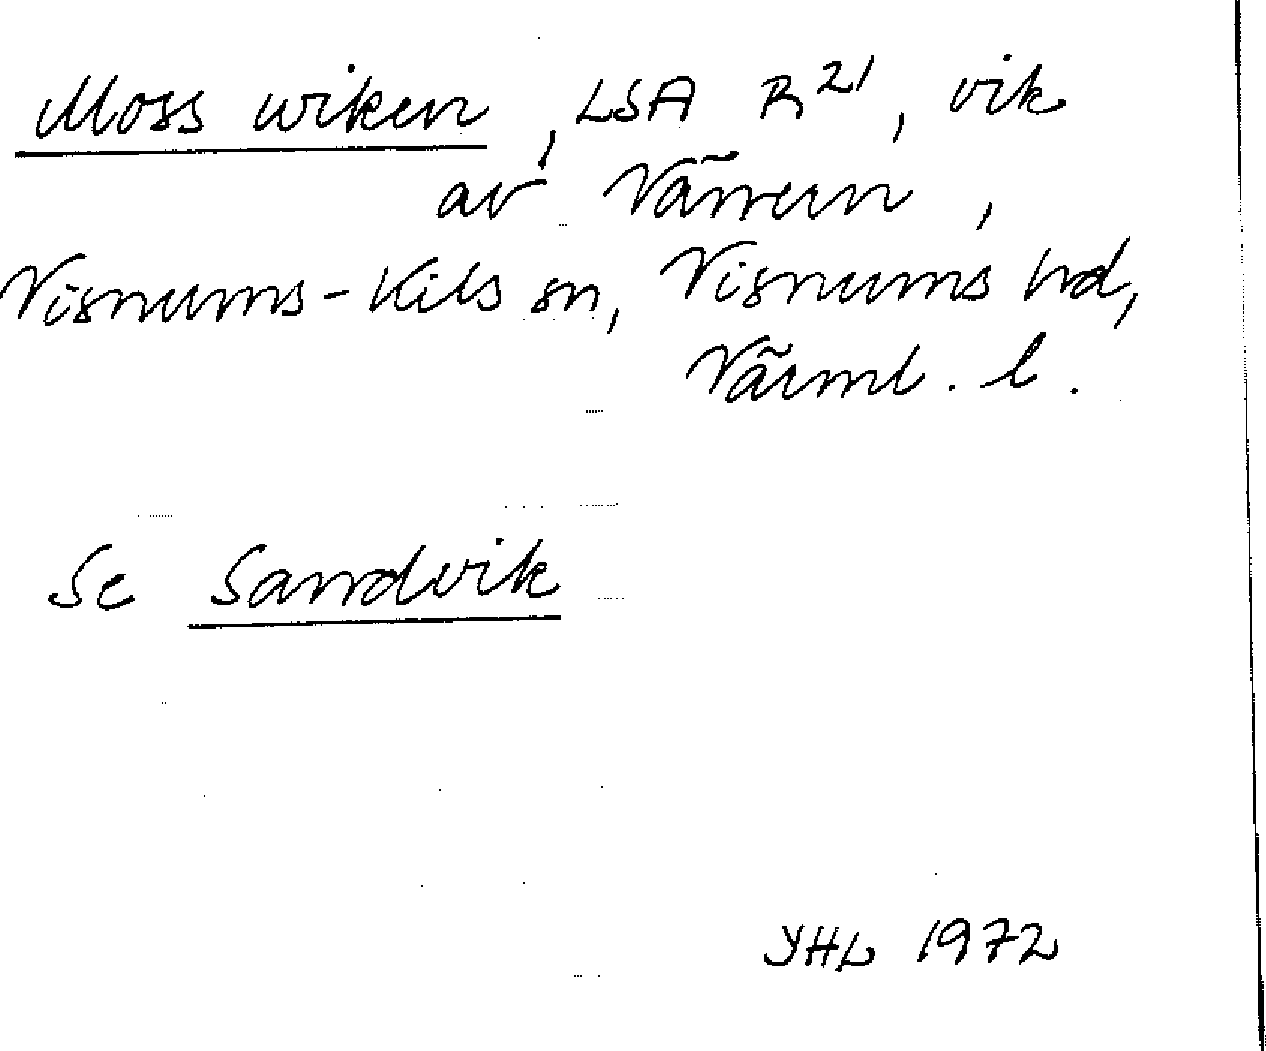 Moss wiken, LSA R²¹, vik
av Vänern,
Visnums-Kils sn, Visnums hd,
Värml. l.
Se Sandvik
YHL 1972